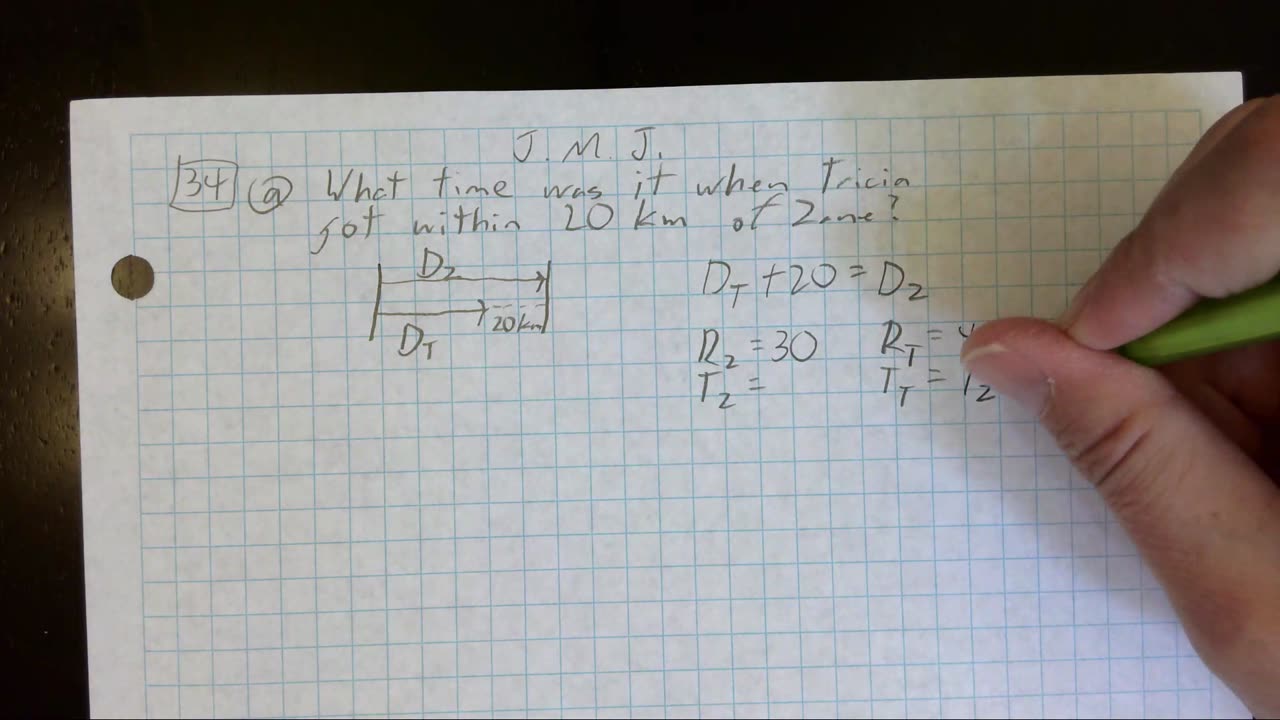 J. M. J.
34 a What time was it when Tricia
got within 20 km of Zane?
D_Z
20km
D_T
D_T + 20 = D_Z
R_Z = 30 R_T =
T_Z = T_T = T_Z